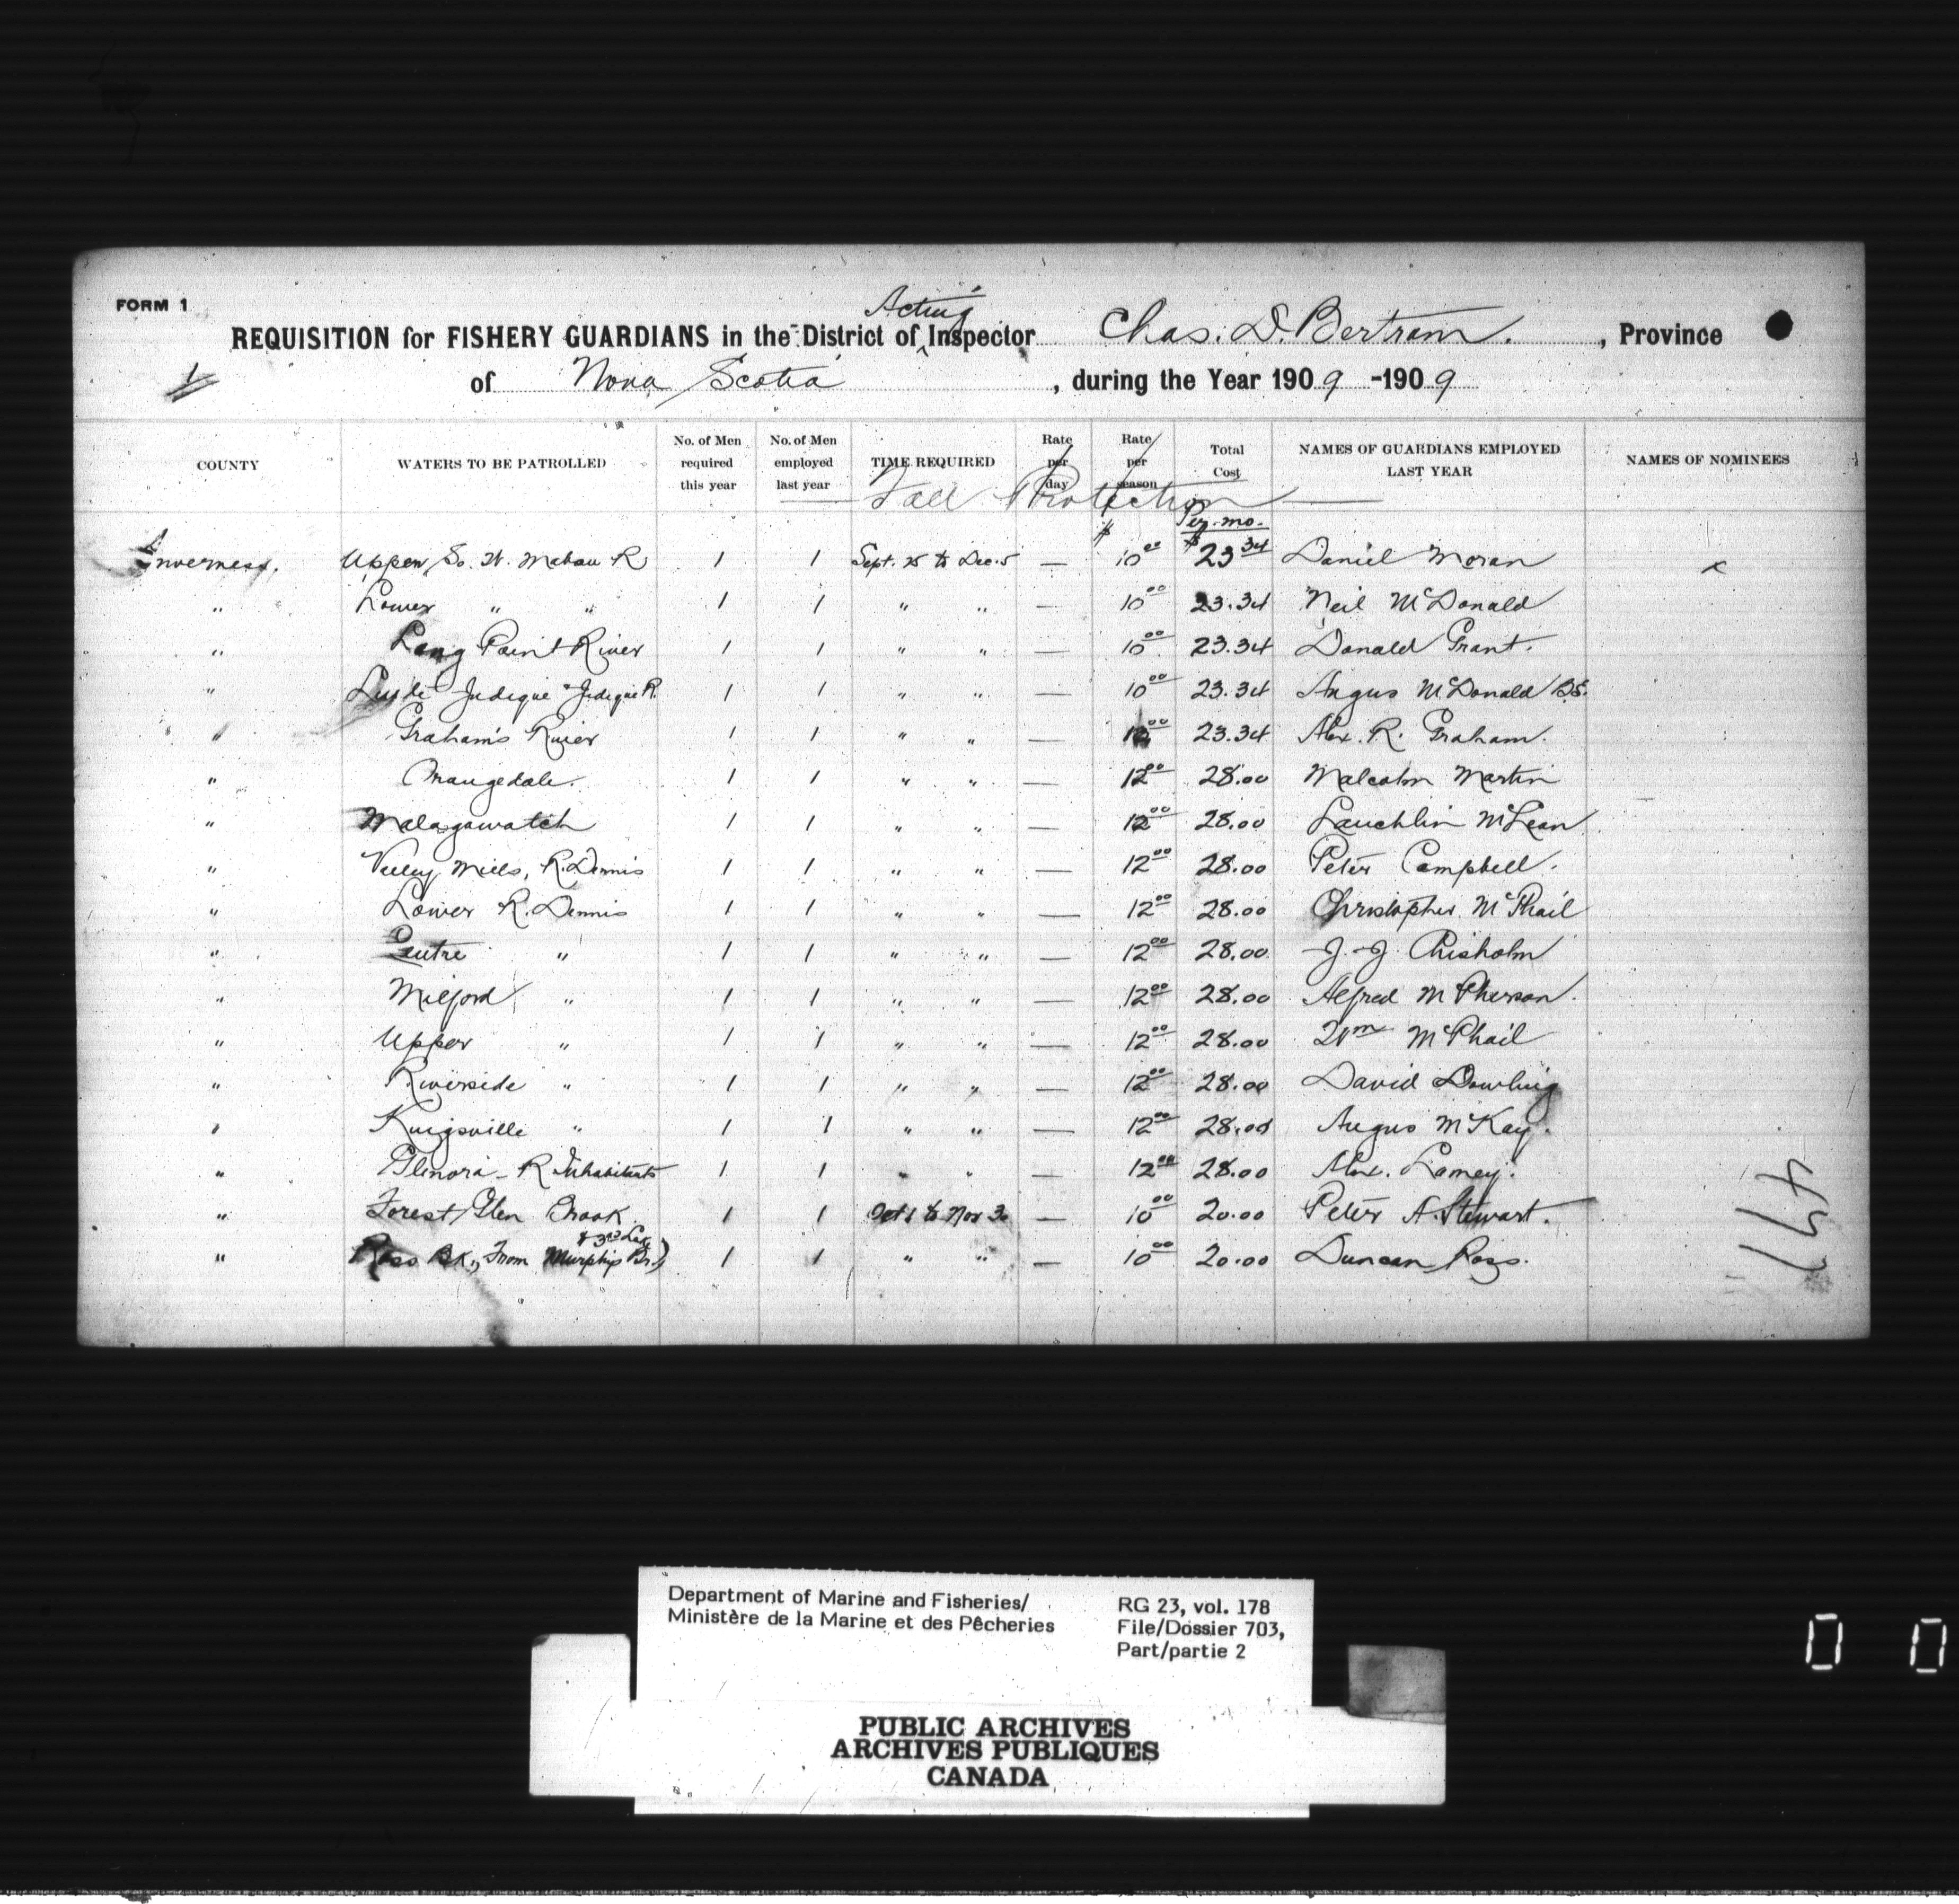 FORM 1
Acting
REQUISITION for FISHERY GUARDIANS in the District of Inspector Chas. D. Bertram. , Province
1
of Nova Scotia , during the Year 1909 -1909
COUNTY WATERS TO BE PATROLLED No. of Men required this year No. of Men employed last year TIME REQUIRED Rate per day Rate per season Total Cost NAMES OF GUARDIANS EMPLOYED LAST YEAR NAMES OF NOMINEES
Fall Protection
Per mo.
Inverness. Upper So. W. Mabou R 1 1 Sept. 25 to Dec. 5 — $10 00 $23 34 Daniel Moran x
" Lower " " 1 1 " " — 10 00 23.34 Neil McDonald
" Long Point River 1 1 " " — 10 00 23.34 Donald Grant.
" Little Judique & Judique R. 1 1 " " — 10 00 23.34 Angus McDonald
" Graham's River 1 1 " " — 10 00 23.34 Alex. R. Graham.
" Orangedale. 1 1 " " — 12 00 28.00 Malcolm Martin
" Malagawatch 1 1 " " — 12 00 28.00 Lauchlin McLean
" Mills, R. Dennis 1 1 " " — 12 00 28.00 Peter Campbell.
" Lower R. Dennis 1 1 " " — 12 00 28.00 Christopher McPhail
" Centre " 1 1 " " — 12 00 28.00 J. J. Chisholm
" Milford " 1 1 " " — 12 00 28.00 Alfred McPherson.
" Upper " 1 1 " " — 12 00 28.00 Wm McPhail
" Riverside " 1 1 " " — 12 00 28.00 David Dowling
" Kingsville " 1 1 " " — 12 00 28.00 Angus McKay.
" Glenora - R Inhabitants 1 1 " " — 12 00 28.00 Alex. Lamey.
" Forest Glen Brook 1 1 Oct 1 to Nov 30 — 10 00 20.00 Peter A. Stewart.
& 3rd Lake
" Ross Bk., From Murphy's Br.) 1 1 " " — 10 00 20.00 Duncan Ross.
477
Department of Marine and Fisheries/
Ministère de la Marine et des Pêcheries
RG 23, vol. 178
File/Dossier 703,
Part/partie 2
PUBLIC ARCHIVES
ARCHIVES PUBLIQUES
CANADA
0 0